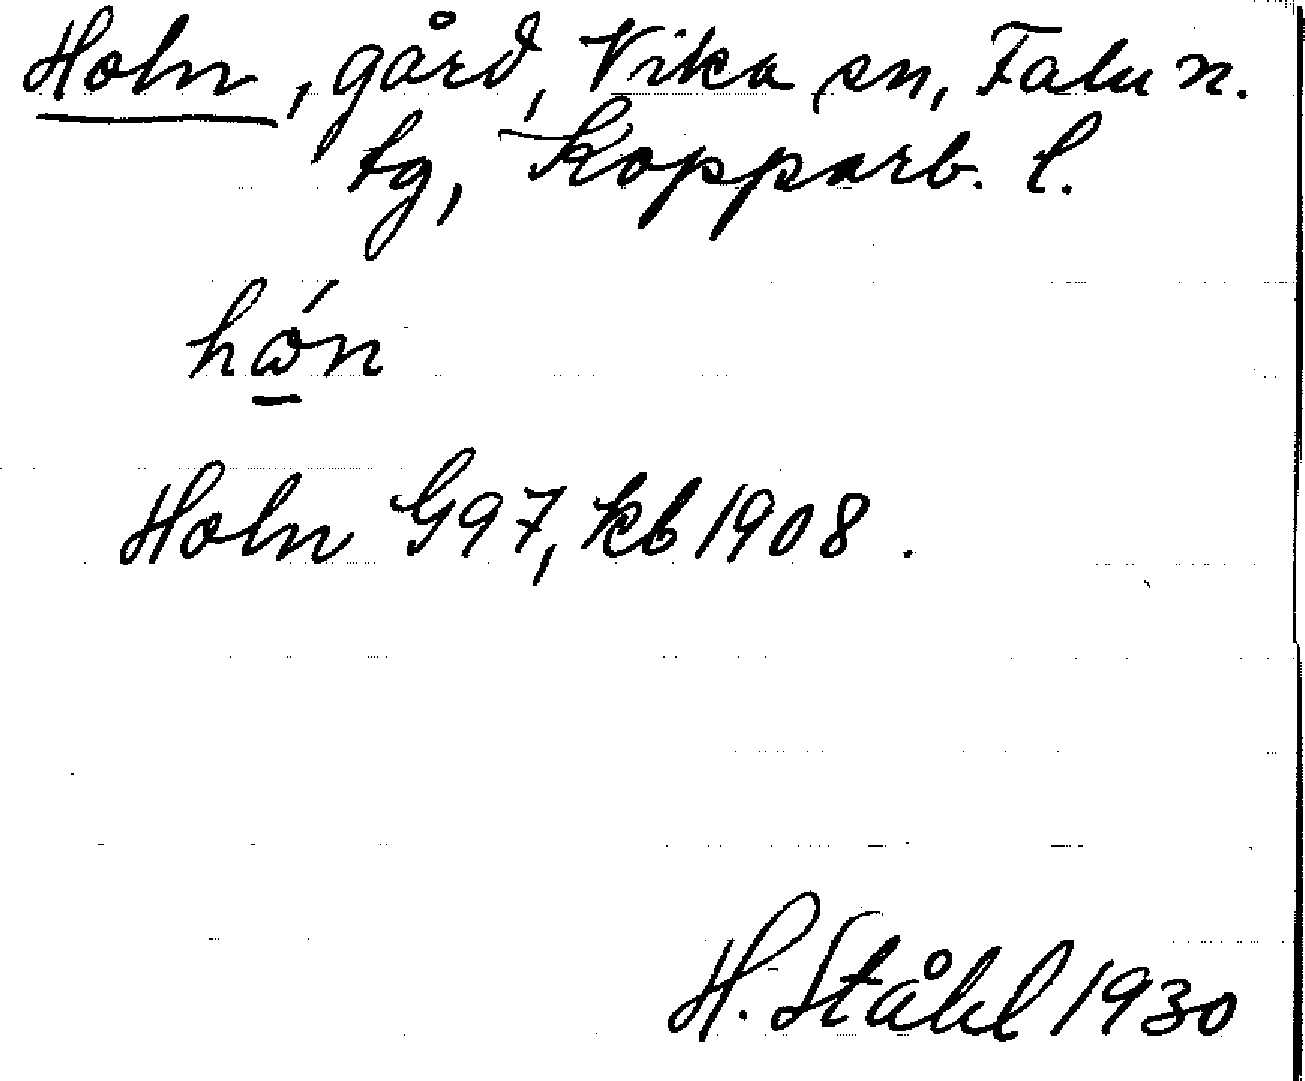 Holn, gård, Vika sn, Falu n.
tg, Kopparb. l.
hɷ́n
Holn G97, kb 1908.
H. Ståhl 1930